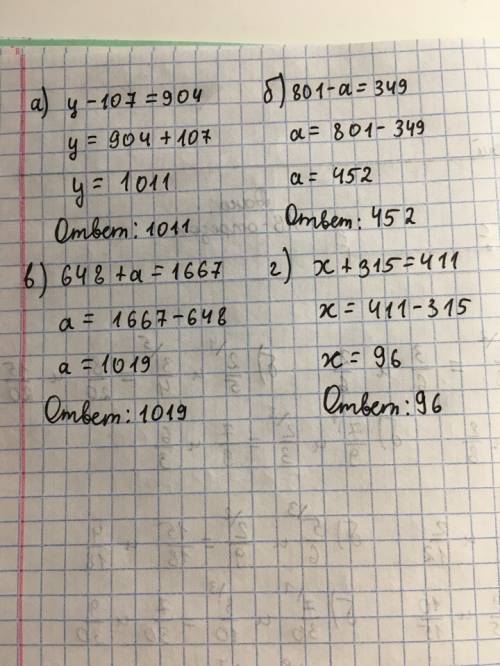 а) y - 107 = 904
y = 904 + 107
y = 1011
Ответ: 1011
б) 801 - a = 349
a = 801 - 349
a = 452
Ответ: 452
в) 648 + a = 1667
a = 1667 - 648
a = 1019
Ответ: 1019
г) x + 315 = 411
x = 411 - 315
x = 96
Ответ: 96